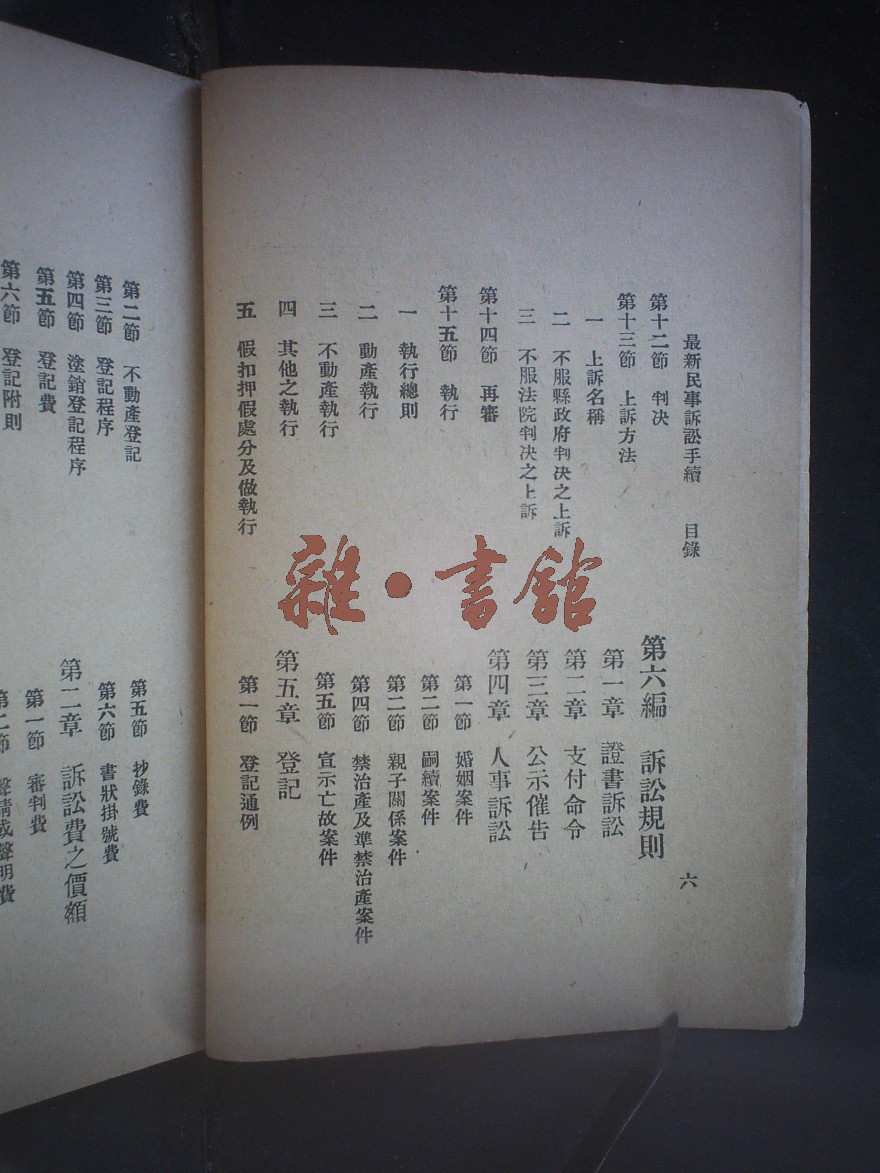 最新民事訴訟手續 目錄
六
第十二節 判决
第十三節 上訴方法
一 上訴名稱
二 不服縣政府判决之上訴
三 不服法院判决之上訴
第十四節 再審
第十五節 執行
一 執行總則
二 動產執行
三 不動產執行
四 其他之執行
五 假扣押假處分及做執行
第六編 訴訟規則
第一章 證書訴訟
第二章 支付命令
第三章 公示催告
第四章 人事訴訟
第一節 婚姻案件
第二節 嗣續案件
第二節 親子關係案件
第四節 禁治產及準禁治產案件
第五節 宣示亡故案件
第五章 登記
第一節 登記通例
第二節 不動產登記
第三節 登記程序
第四節 塗銷登記程序
第五節 登記費
第六節 登記附則
第五節 抄錄費
第六節 書狀掛號費
第二章 訴訟費之價額
第一節 審判費
第二節 聲請或聲明費
雜·書館